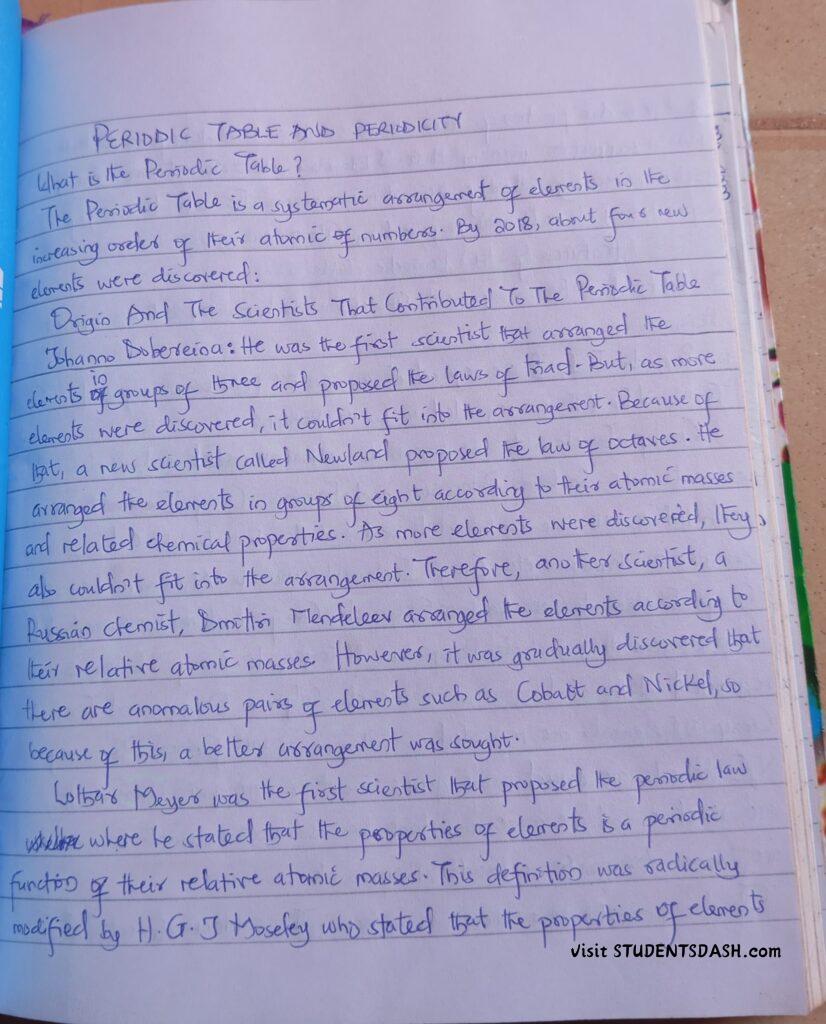 PERIODIC TABLE AND PERIODICITY
What is the Periodic Table?
The Periodic Table is a systematic arrangement of elements in the
increasing order of their atomic of numbers. By 2018, about four new
elements were discovered:
Origin And The Scientists That Contributed To The Periodic Table
Johanno Dobereina: He was the first scientist that arranged the
elements in groups of three and proposed the laws of triad. But, as more
elements were discovered, it couldn't fit into the arrangement. Because of
that, a new scientist called Newland proposed the law of octaves. He
arranged the elements in groups of eight according to their atomic masses
and related chemical properties. As more elements were discovered, they
also couldn't fit into the arrangement. Therefore, another scientist, a
Russian chemist, Dmitri Mendeleev arranged the elements according to
their relative atomic masses. However, it was gradually discovered that
there are anomalous pairs of elements such as Cobalt and Nickel, so
because of this, a better arrangement was sought.
Lothar Meyer was the first scientist that proposed the periodic law
where he stated that the properties of elements is a periodic
function of their relative atomic masses. This definition was radically
modified by H.G.J Moseley who stated that the properties of elements
Visit STUDENTSDASH.com